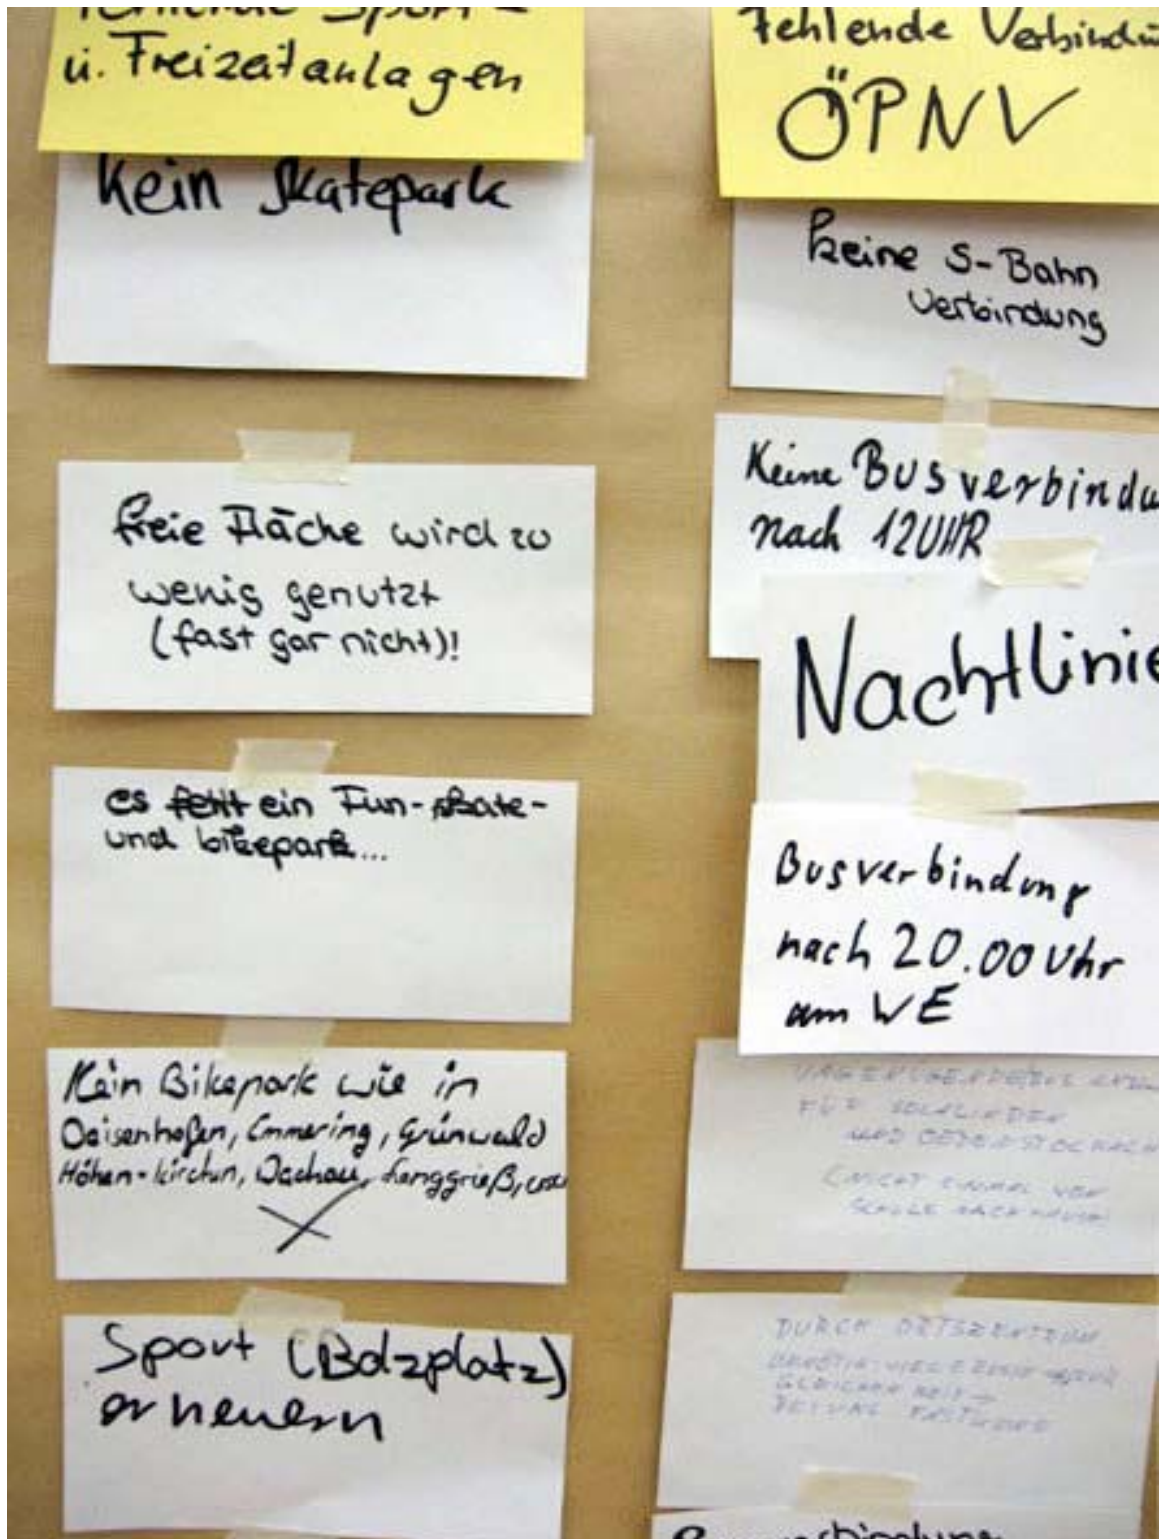 fehlende Sport-
u. Freizeitanlagen
Kein Skatepark
freie Fläche wird zu
wenig genutzt
(fast gar nicht)!
es fehlt ein Fun-skate-
und bikepark...
Kein Bikepark wie in
Deisenhofen, Emmering, Grünwald
Höhen-kirchen, Dachau, Lenggrieß,
Sport (Bolzplatz)
erneuern
Fehlende Verbindu
ÖPNV
keine S-Bahn
Verbindung
Keine Busverbindu
nach 12UHR
Nachtlinie
Busverbindung
nach 20.00 Uhr
am WE
FÜR
UND
(NICHT EINMAL VON
SCHULE NACH
DURCH ORTSZENTRUM